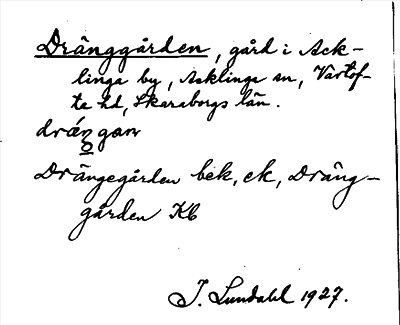 Dränggården, gård i Ack-
linga by, Acklinga sn, Vartof-
ta hd, Skaraborgs län.
drä́ŋgan
Drängegården bek, ek, Dräng-
gården Kb
I. Lundahl 1927.